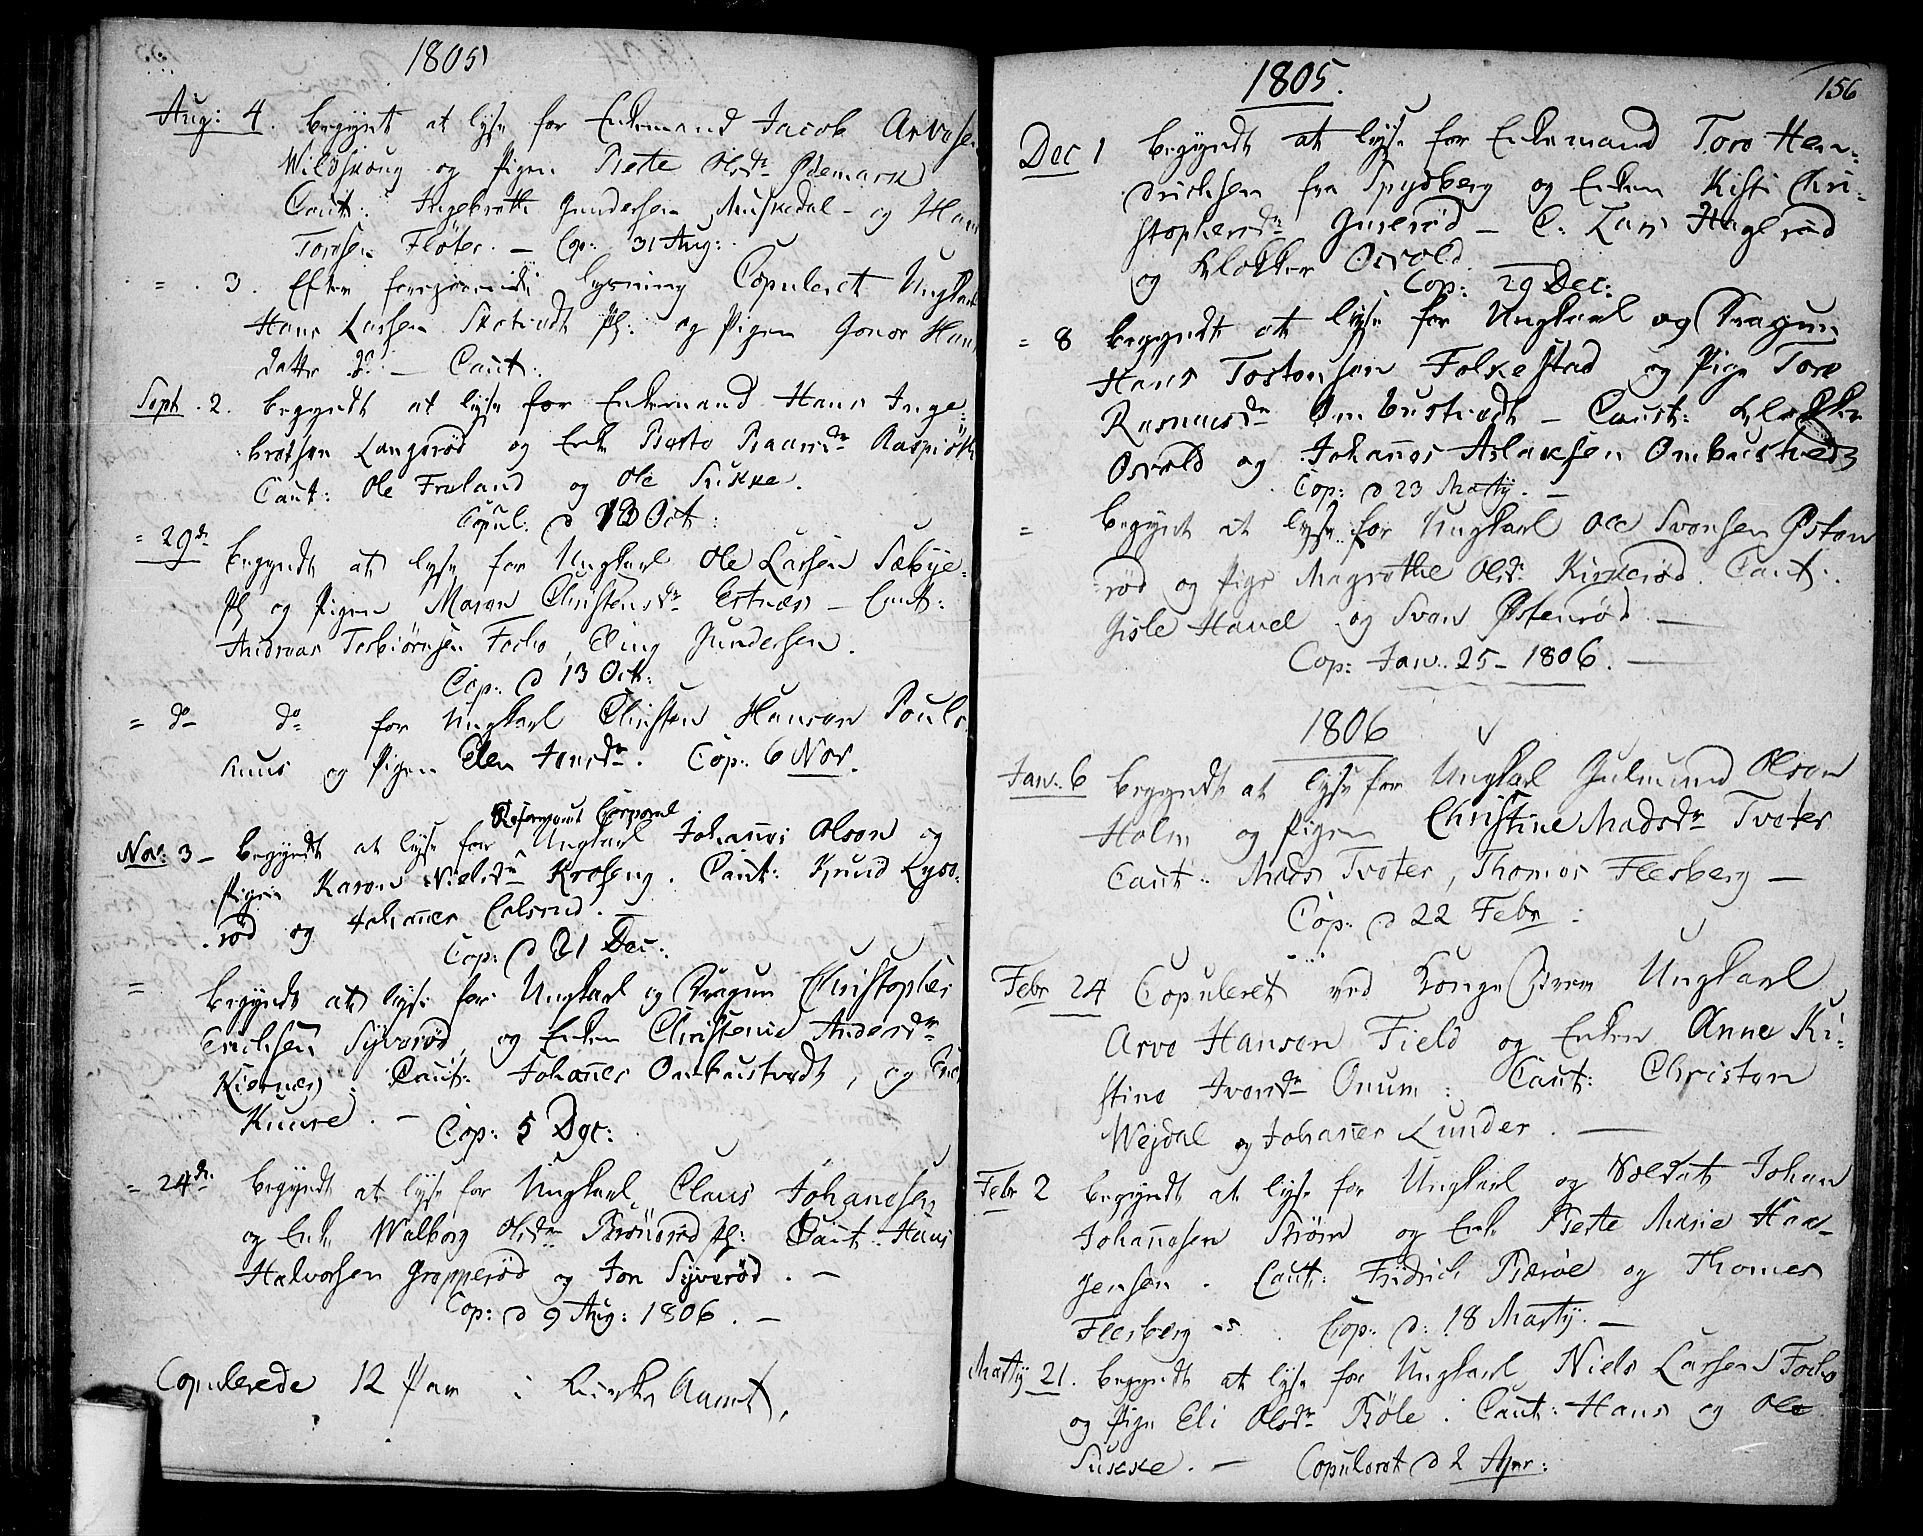 1805
Aug: 4. begyndt at lyse for Enkemand Jacob Arvesen
Wildskoug og Pigen Berte Olsdr Ødemark
Caut: Ingebreth Gundersen Muskedal - og Hans
Torsen Fløter. - Cop: 31 Aug:
= . 3. Efter foregaaende lysning Copuleret Ungkarl
Hans Larsen pl: og Pigen Gonor Hans
datter do - Caut:
Sept. 2. begyndt at lyse for Enkemand Hans Inge-
brethsen Langerød og Enke Berte
Caut: Ole Froland og Ole Sukke.
Copul: d 13 Oct:
= 29de begyndt at lyse for Ungkarl Ole Larsen Sæbye-
pl og Pigen Maren Christensdr Estnæs - Caut:
Andreas Torbiørnsen Focho, Eling Gundersen.
Cop: d 13 Oct:
= do do for Ungkarl Christen Hansen Pouls
huus og Pigen Elen Jensdr. Cop: 6 Nov.
Corporal
Nov: 3 - begyndt at lyse for Ungkarl Johannes Olsen og
Pigen Karen Nielsdr Kroseng. Caut: Knud Lyse-
rød og Johannes
Cop: d 21 Dec:
= begyndt at lyse for Ungkarl og Dragun Christopher
Erichsen Syverød, og Enken Christenie Andersdr
Kiernæs: Caut: Johannes Ombustvedt, og
Kuure. - Cop: 5 Dec:
= 24de begyndt at lyse for Ungkarl Claus Johanesen
og Enke Walborg Olsdr pl: Caut: Hans
Halvorsen Gropperød og Jon Syverød. -
Cop: d 9 Aug: 1806. -
Copulerede 12 Par i Kirke Aaret,
156
1805.
Dec 1 begyndt at lyse for Enkemand Tore Hen-
drichsen fra Spydberg og Enken Kisti Chri-
stophersdr Guserød - C: Lars Haglerød
og Klokker Osvold.
Cop: 29 Dec:
= 8 begyndt at lyse for Ungkarl og Dragun
Hans Tostensen Folkestad og Pige Tore
Rasmusdr Ombustvedt - Caut: Klokker
Osvold og Johannes Aslaksen Ombustvedt
Cop: d 23 Martij. -
= begyndt at lyse for Ungkarl Ole Svensen Østen-
rød og Pige Magrethe Olsdr Kirkerød. Caut:
Gisle Havel og Sven Østenrød. -
Cop: Jan: 25 - 1806. -
1806
Jan: 6 begyndt at lyse for Ungkarl Gulmund Olsen
Holm og Pigen Christine Madsdr Tveter
Caut: Mads Tveter, Thomes Flesberg -
Cop: d 22 Febr:
Febr 24 Copuleret ved Kongebrev Ungkarl
Arve Hansen Field og Enken Anne Ki-
stine Iversdr Onum: Caut: Christen
Wejdal og Johannes Lunder. -
Febr 2 begyndt at lyse for Ungkarl og Soldat Johan
Johannesen Strøm og Enke Berte Marie Haa-
gensen. Caut: Fridrich Bærøe og Thomes
Flesberg Cop: d: 18 Martij. -
Martij 21. begyndt at lyse for Ungkarl Niels Larsen Focho
og Pige Eli Olsdr Bøle. Caut: Hans og Ole
Sukke. - Copuleret d 2 Apr: